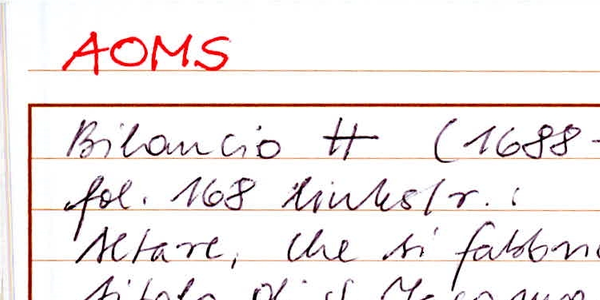 AOMS
Bilancio H (1688-
fol. 168 links/r. :
Altare, che si fabbri
titolo di S.